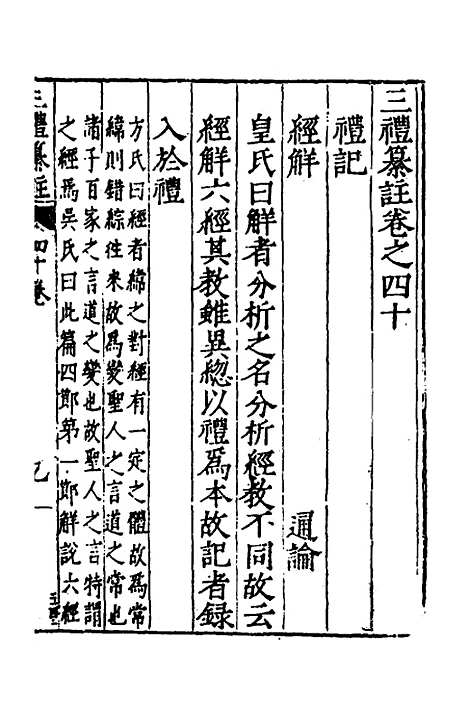 三禮纂註卷之四十
禮記
經解　通論
皇氏曰解者分析之名分析經教不同故云
經解六經其教雖異總以禮為本故記者錄
入於禮
方氏曰經者緯之對經有一定之體故為常
緯則錯綜徃來故為變聖人之言道之常也
諸子百家之言道之變也故聖人之言特謂
之經焉吳氏曰此篇四節第一節解說六經
三禮纂註 四十卷 一